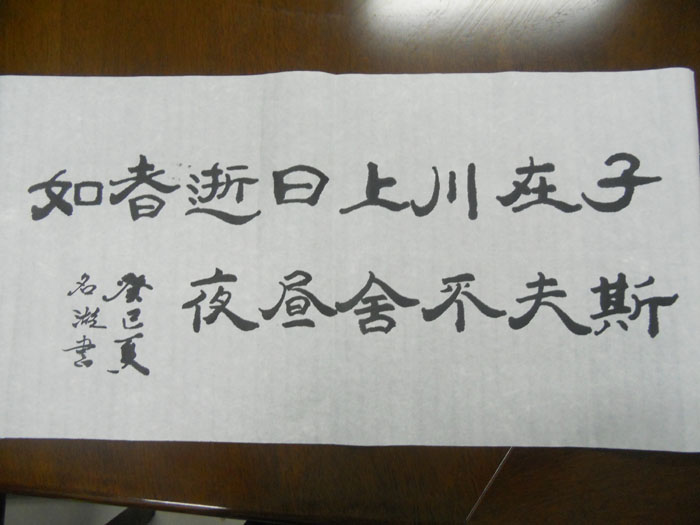 子在川上曰逝者如
斯夫不舍昼夜
癸巳夏
名書